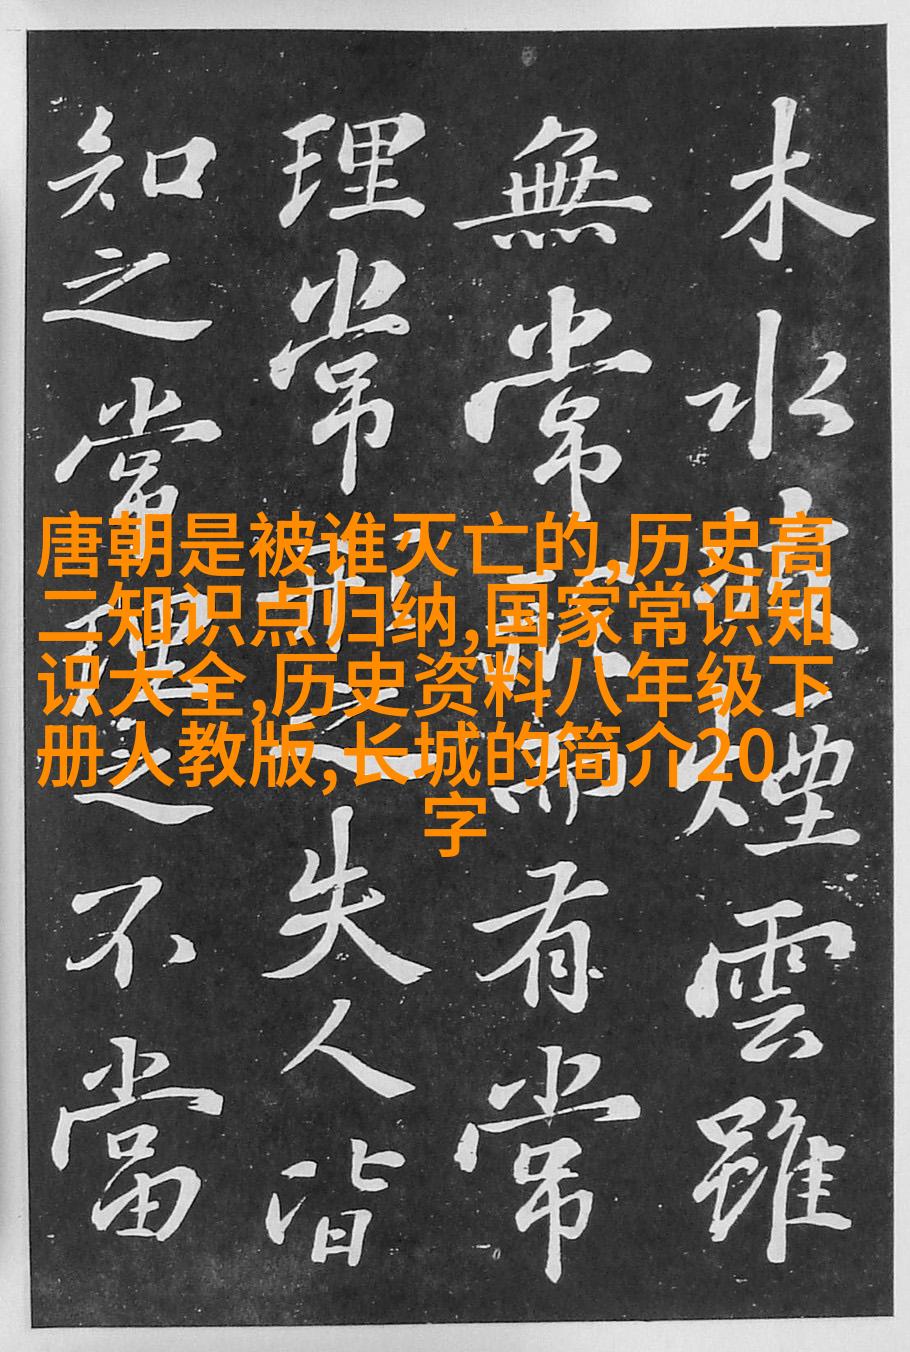 木水波煙雲雖
無常形而有常
理常形之失人皆
知之常理之不當
唐朝是被谁灭亡的,历史高
二知识点归纳,国家常识知
识大全,历史资料八年级下
册人教版,长城的简介20
字